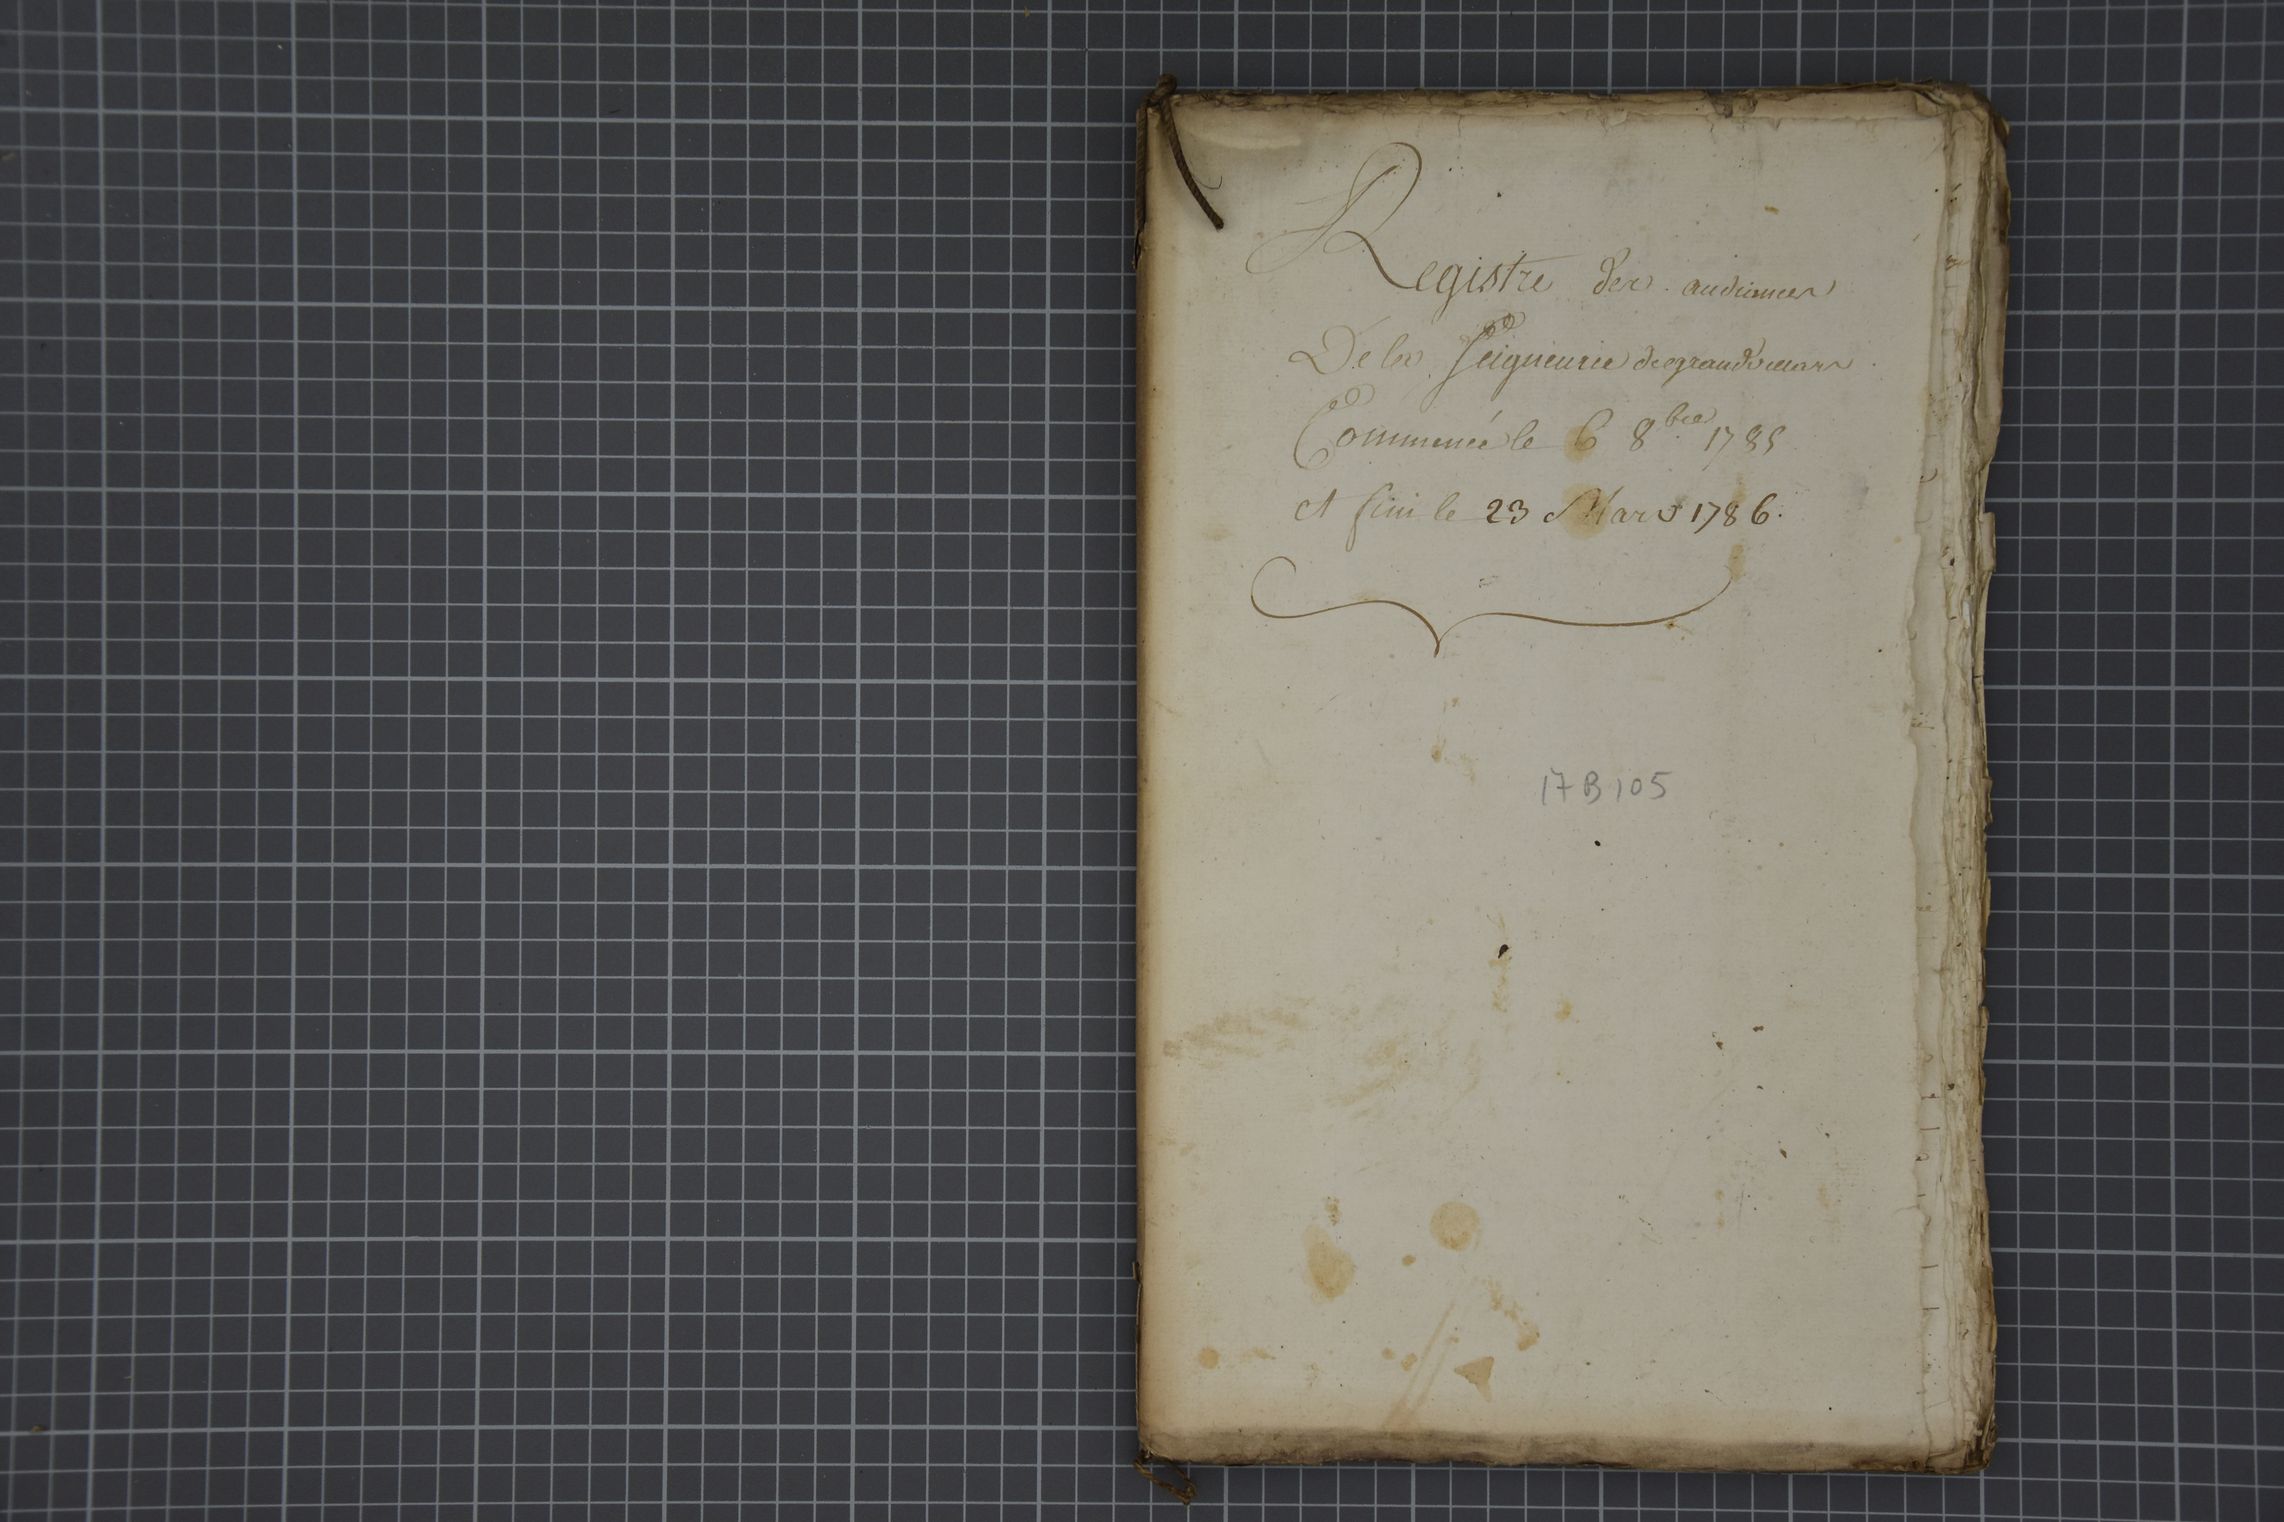 Registre des audiences
De la Seigneurie de grandvaux
Commencé le 6 8bre 1785
et fini le 23 Mars 1786.
17 B 105